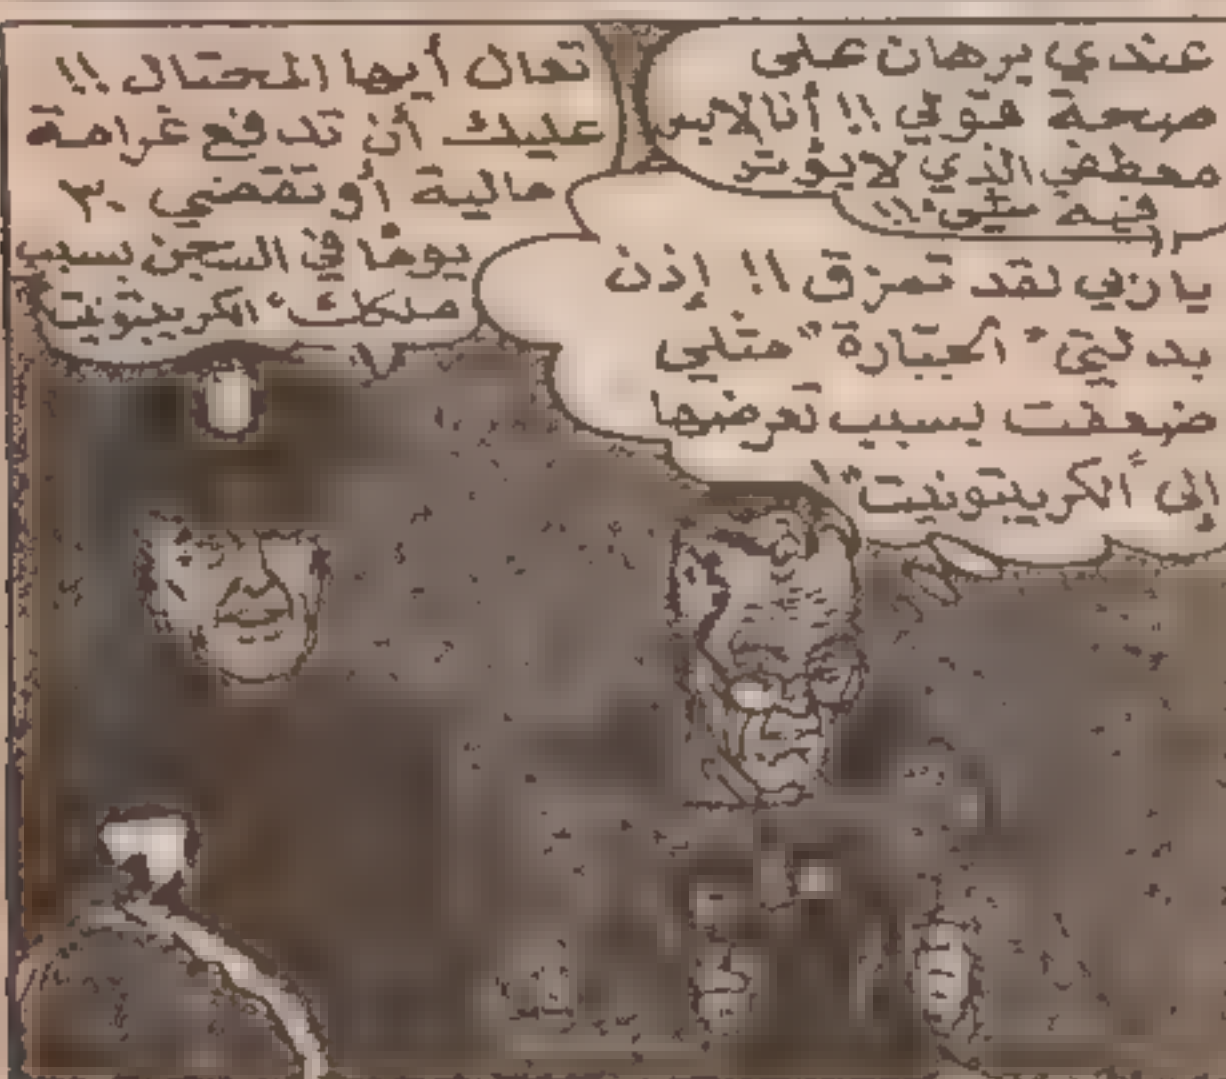 عندي برهان على
صحة قولي !! أنا لابس
معطفي الذي لا يؤثر
فيه شيء !!
يا ربي لقد تمزق !! إذن
بدلتي " الجبارة " مثلي
ضعفت بسبب تعرضها
إلى " الكريبتونيت "
تعال أيها المحتال !!
عليك أن تدفع غرامة
مالية أو تقضي ٣٠
يوما في السجن بسبب
" الكريبتونيت